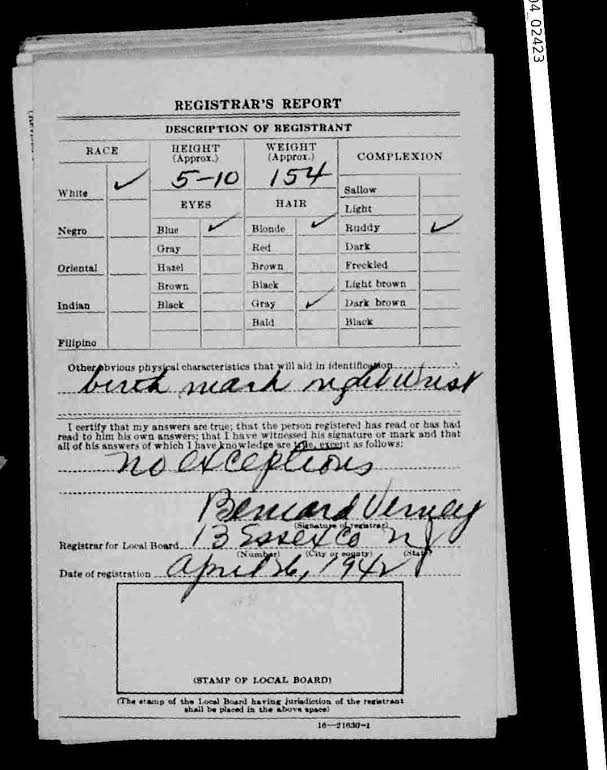 04_02423
REGISTRAR'S REPORT
DESCRIPTION OF REGISTRANT
RACE
HEIGHT
(Approx.)
WEIGHT
(Approx.)
COMPLEXION
5-10
154
White ✓
Sallow
EYES
HAIR
Light
Negro
Blue ✓
Blonde ✓
Ruddy ✓
Gray
Red
Dark
Oriental
Hazel
Brown
Freckled
Brown
Black
Light brown
Indian
Black
Gray ✓
Dark brown
Bald
Black
Filipino
Other obvious physical characteristics that will aid in identification
birth mark right wrist
I certify that my answers are true; that the person registered has read or has had
read to him his own answers; that I have witnessed his signature or mark and that
all of his answers of which I have knowledge are true, except as follows:
no exceptions
Bernard Verney
(Signature of registrar)
Registrar for Local Board 13 Essex Co NJ
(Number) (City or county) (State)
Date of registration April 26, 1942
(STAMP OF LOCAL BOARD)
(The stamp of the Local Board having jurisdiction of the registrant
shall be placed in the above space)
16—21630-1